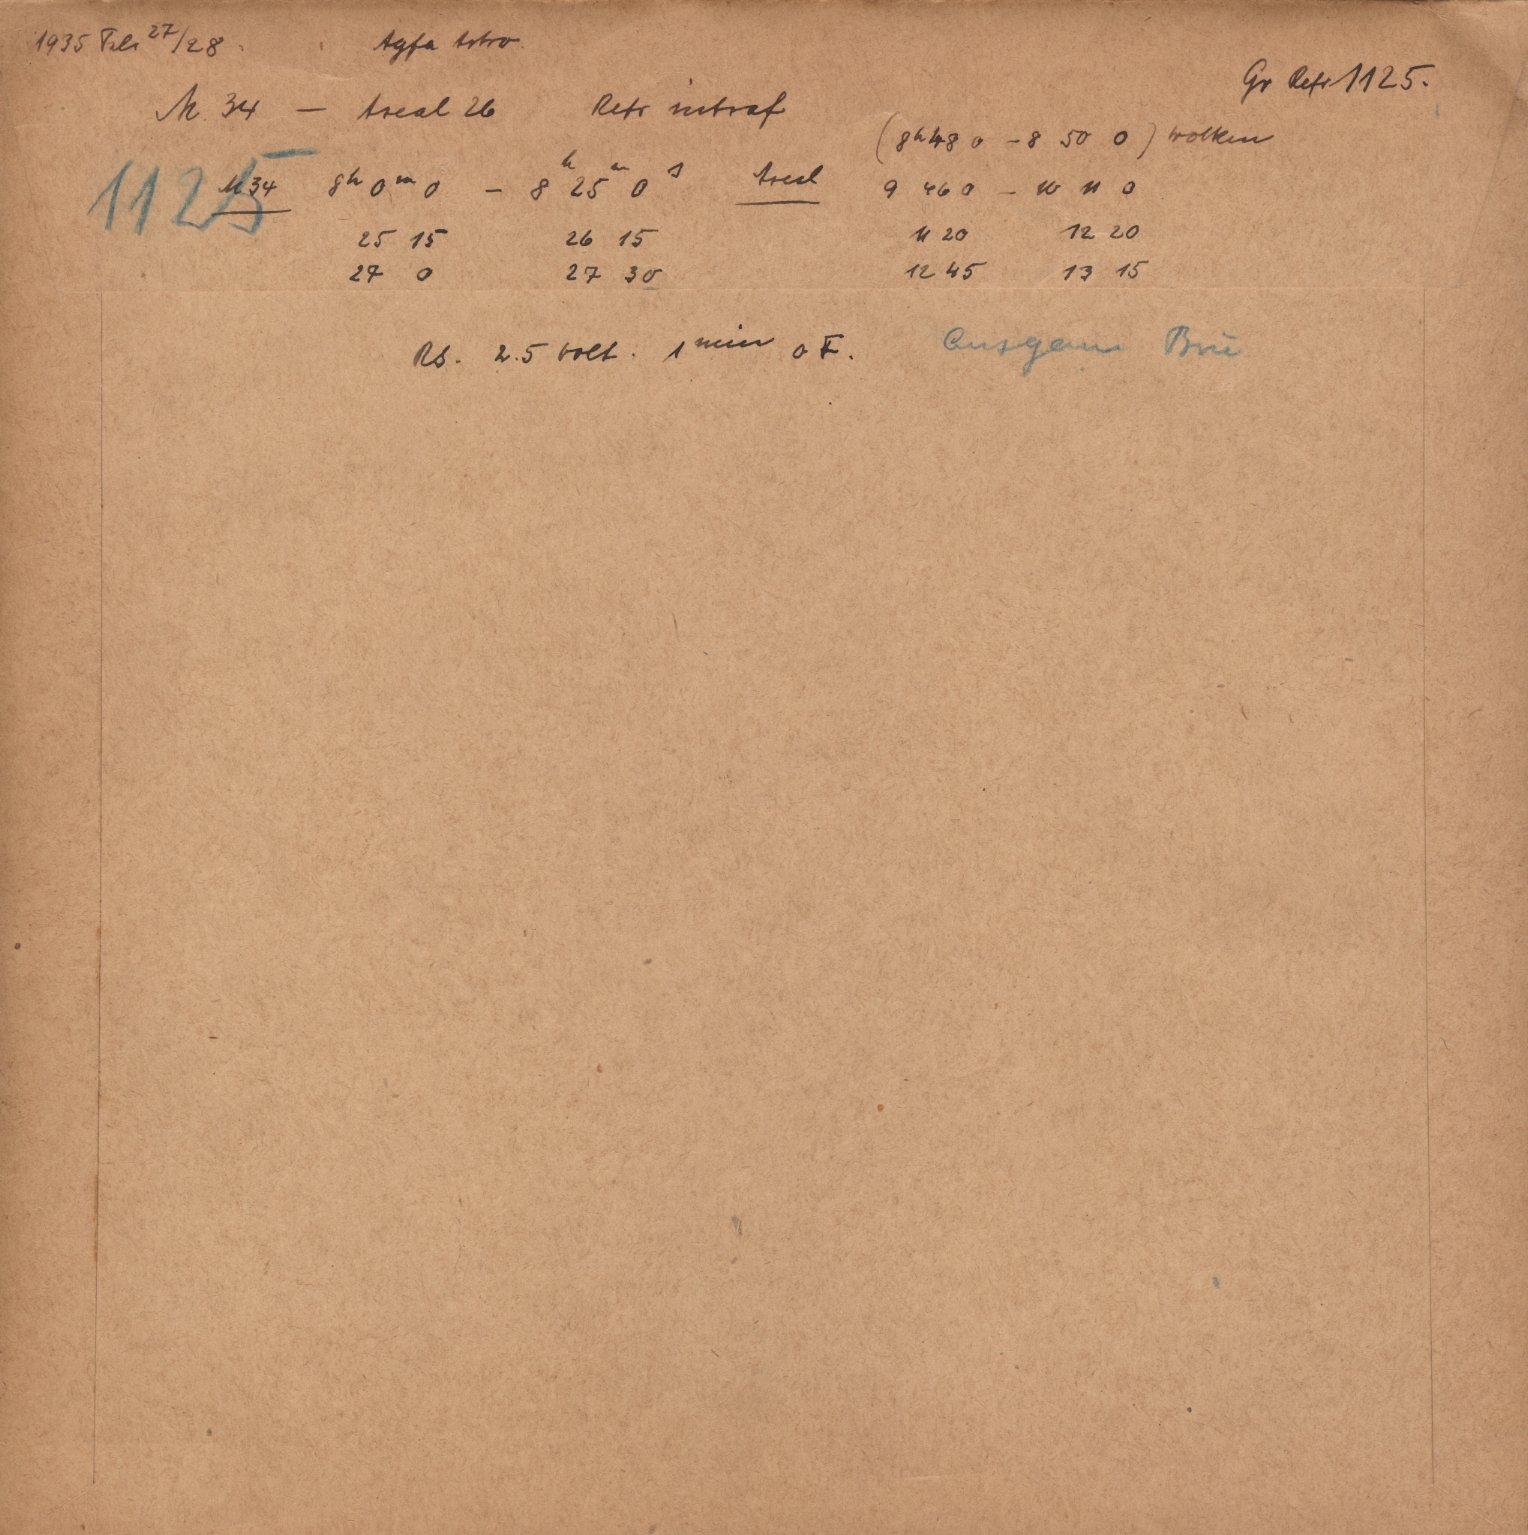 1935 Feb 27/28. Agfa Astro
Gr Refr 1125.
M. 34 — Areal 26 Refr intraf
(8h 48 0 - 8 50 0) Wolken
1125
M 34 8h 0m 0 - 8h 25m 0s Areal 9 46 0 - 10 11 0
25 15 26 15 11 20 12 20
27 0 27 30 12 45 13 15
RS. 2.5 Volt. 1 min o F. Ausgem Brü